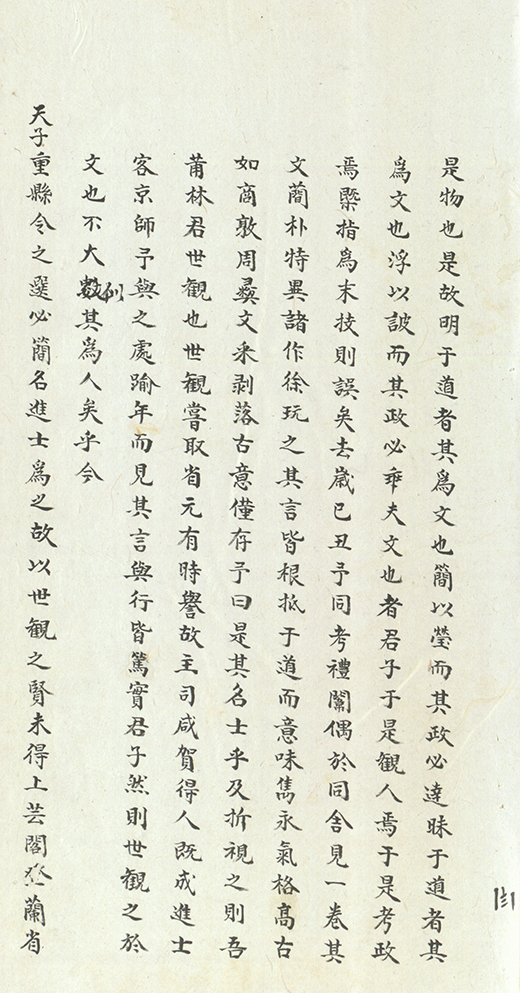 是物也是故明于道者其爲文也簡以瑩而其政必達昧于道者其
爲文也浮以詖而其政必乖夫文也者君子于是觀人焉于是考政
焉槩指爲末技則誤矣去歲己丑予同考禮闈偶於同舍見一卷其
文蕳朴特異諸作徐玩之其言皆根抵于道而意味雋永氣格高古
如商敦周彞文采剥落古意僅存予曰是其名士乎及拆視之則吾
莆林君世觀也世觀嘗取省元有時譽故主司咸賀得人既成進士
客京師予與之處踰年而見其言與行皆篤實君子然則世觀之於
文也不大𢿙其爲人矣乎今
天子重縣令之選必蕳名進士爲之故以世觀之賢未得上芸閣登蘭省